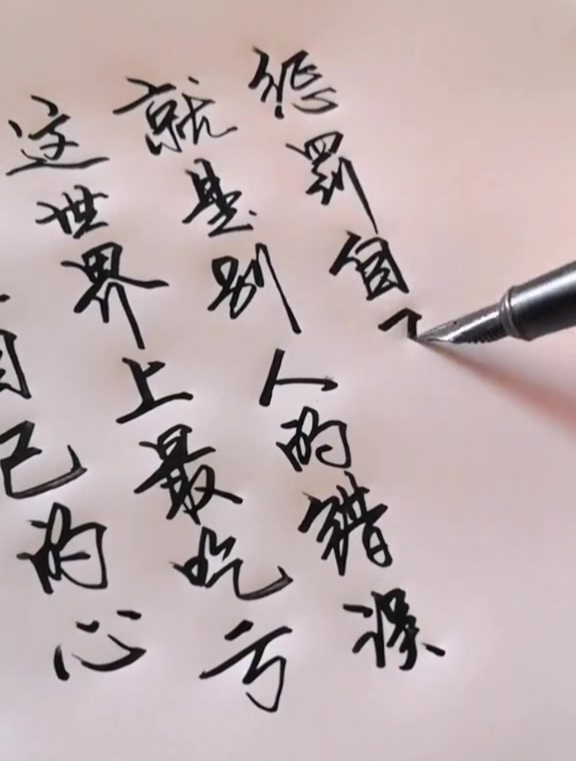 自己的心
这世界上最吃亏
就是别人的错误
惩罚自